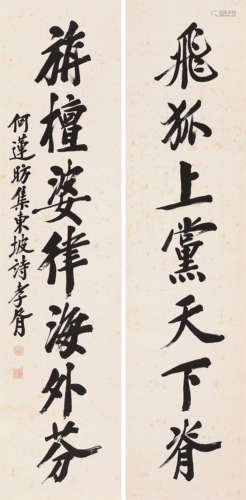 飛狐上黨天下脊
旃檀婆律海外芬
何蓮昉集東坡詩孝胥